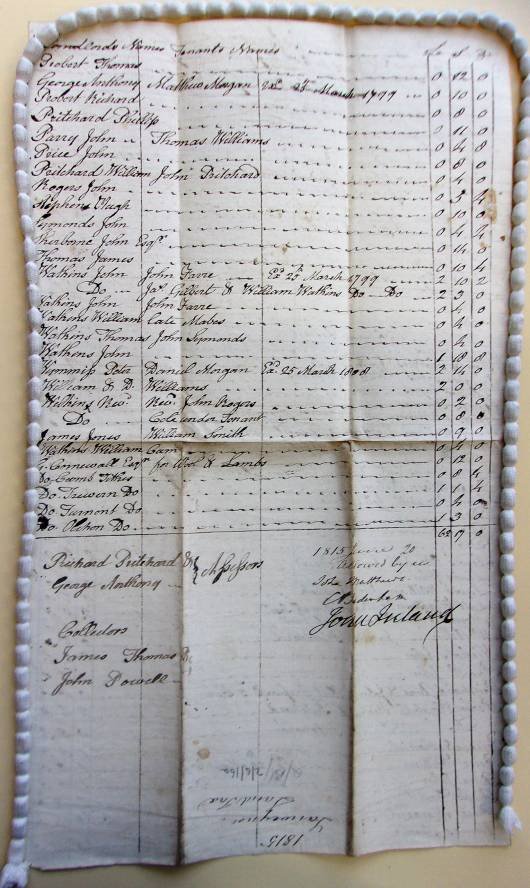 Landlords Names Tenants Names £ s D
Probert Thomas 0 12 0
George Anthony Mathew Morgan Ex.d 25th March 1799 0 10 0
Probert Richard 0 8 0
Pritchard Phillip 0 11 0
Parry John Thomas Williams 0 4 8
Price John 0 8 0
Pritchard William John Pritchard 0 4 0
Rogers John 0 3 4
Stephens Hugh 0 10 0
Symonds John 0 4 4
Sherborne John Esqr. 0 14 0
Thomas James 0 10 4
Watkins John John Farre Ex.d 25th March 1799 2 10 2
Do Jas. Gilbert & William Watkins Do Do 2 3 0
Watkins John John Farre 0 4 0
Watkins William Late Mabes 0 4 0
Watkins Thomas John Symonds 0 4 0
Watkins John 1 18 8
Peter Daniel Morgan Ex.d 25 March 1808 2 14 0
William & D. Williams 2 0 0
Watkins Revd. Revd. John Rogers 0 2 0
Do Cole under Tenant 0 8 0
James Jones William Smith 0 9 0
Watkins William Cam 0 4 0
G. Cornewall Esqr. for Wool & Lambs 0 12 0
Do Coomb Tithes 0 8 4
Do Trewan Do 1 1 4
Do Turnont Do 0 4 0
Do Olchon Do 1 3 0
62 17 0
Richard Pritchard &
George Anthony
} Assessors
1815 June 20
Allowed by us
Jno. Matthews
John Ireland
Collectors
James Thomas
John Powell
Land Tax
1815